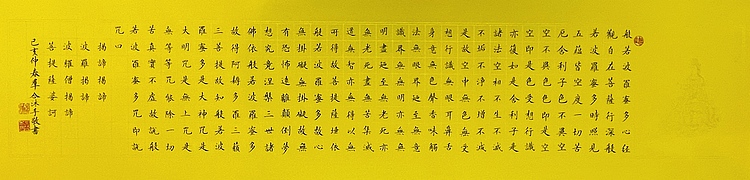 般若波羅蜜多心経
觀自在菩薩行深般
若波羅蜜多時照見
五蘊皆空度一切苦
厄舍利子色不異空
空不異色色即是空
空即是色受想行識
亦復如是舍利子是
諸法空相不生不滅
不垢不淨不增不減
是故空中無色無受
想行識無眼耳鼻舌
身意無色聲香味觸
法無眼界乃至無意
識界無無明亦無無
明盡乃至無老死亦
無老死盡無苦集滅
道無智亦無得以無
所得故菩提薩埵依
般若波羅蜜多故心
無掛礙無掛礙故無
有恐怖遠離顛倒夢
想究竟涅槃三世諸
佛依般若波羅蜜多
故得阿耨多羅三藐
三菩提故知般若波
羅蜜多是大神咒是
大明咒是無上咒是
無等等咒能除一切
苦真實不虛故說般
若波羅蜜多咒即說
咒曰
揭諦揭諦
波羅揭諦
波羅僧揭諦
菩提薩婆訶
己亥仲春敬書